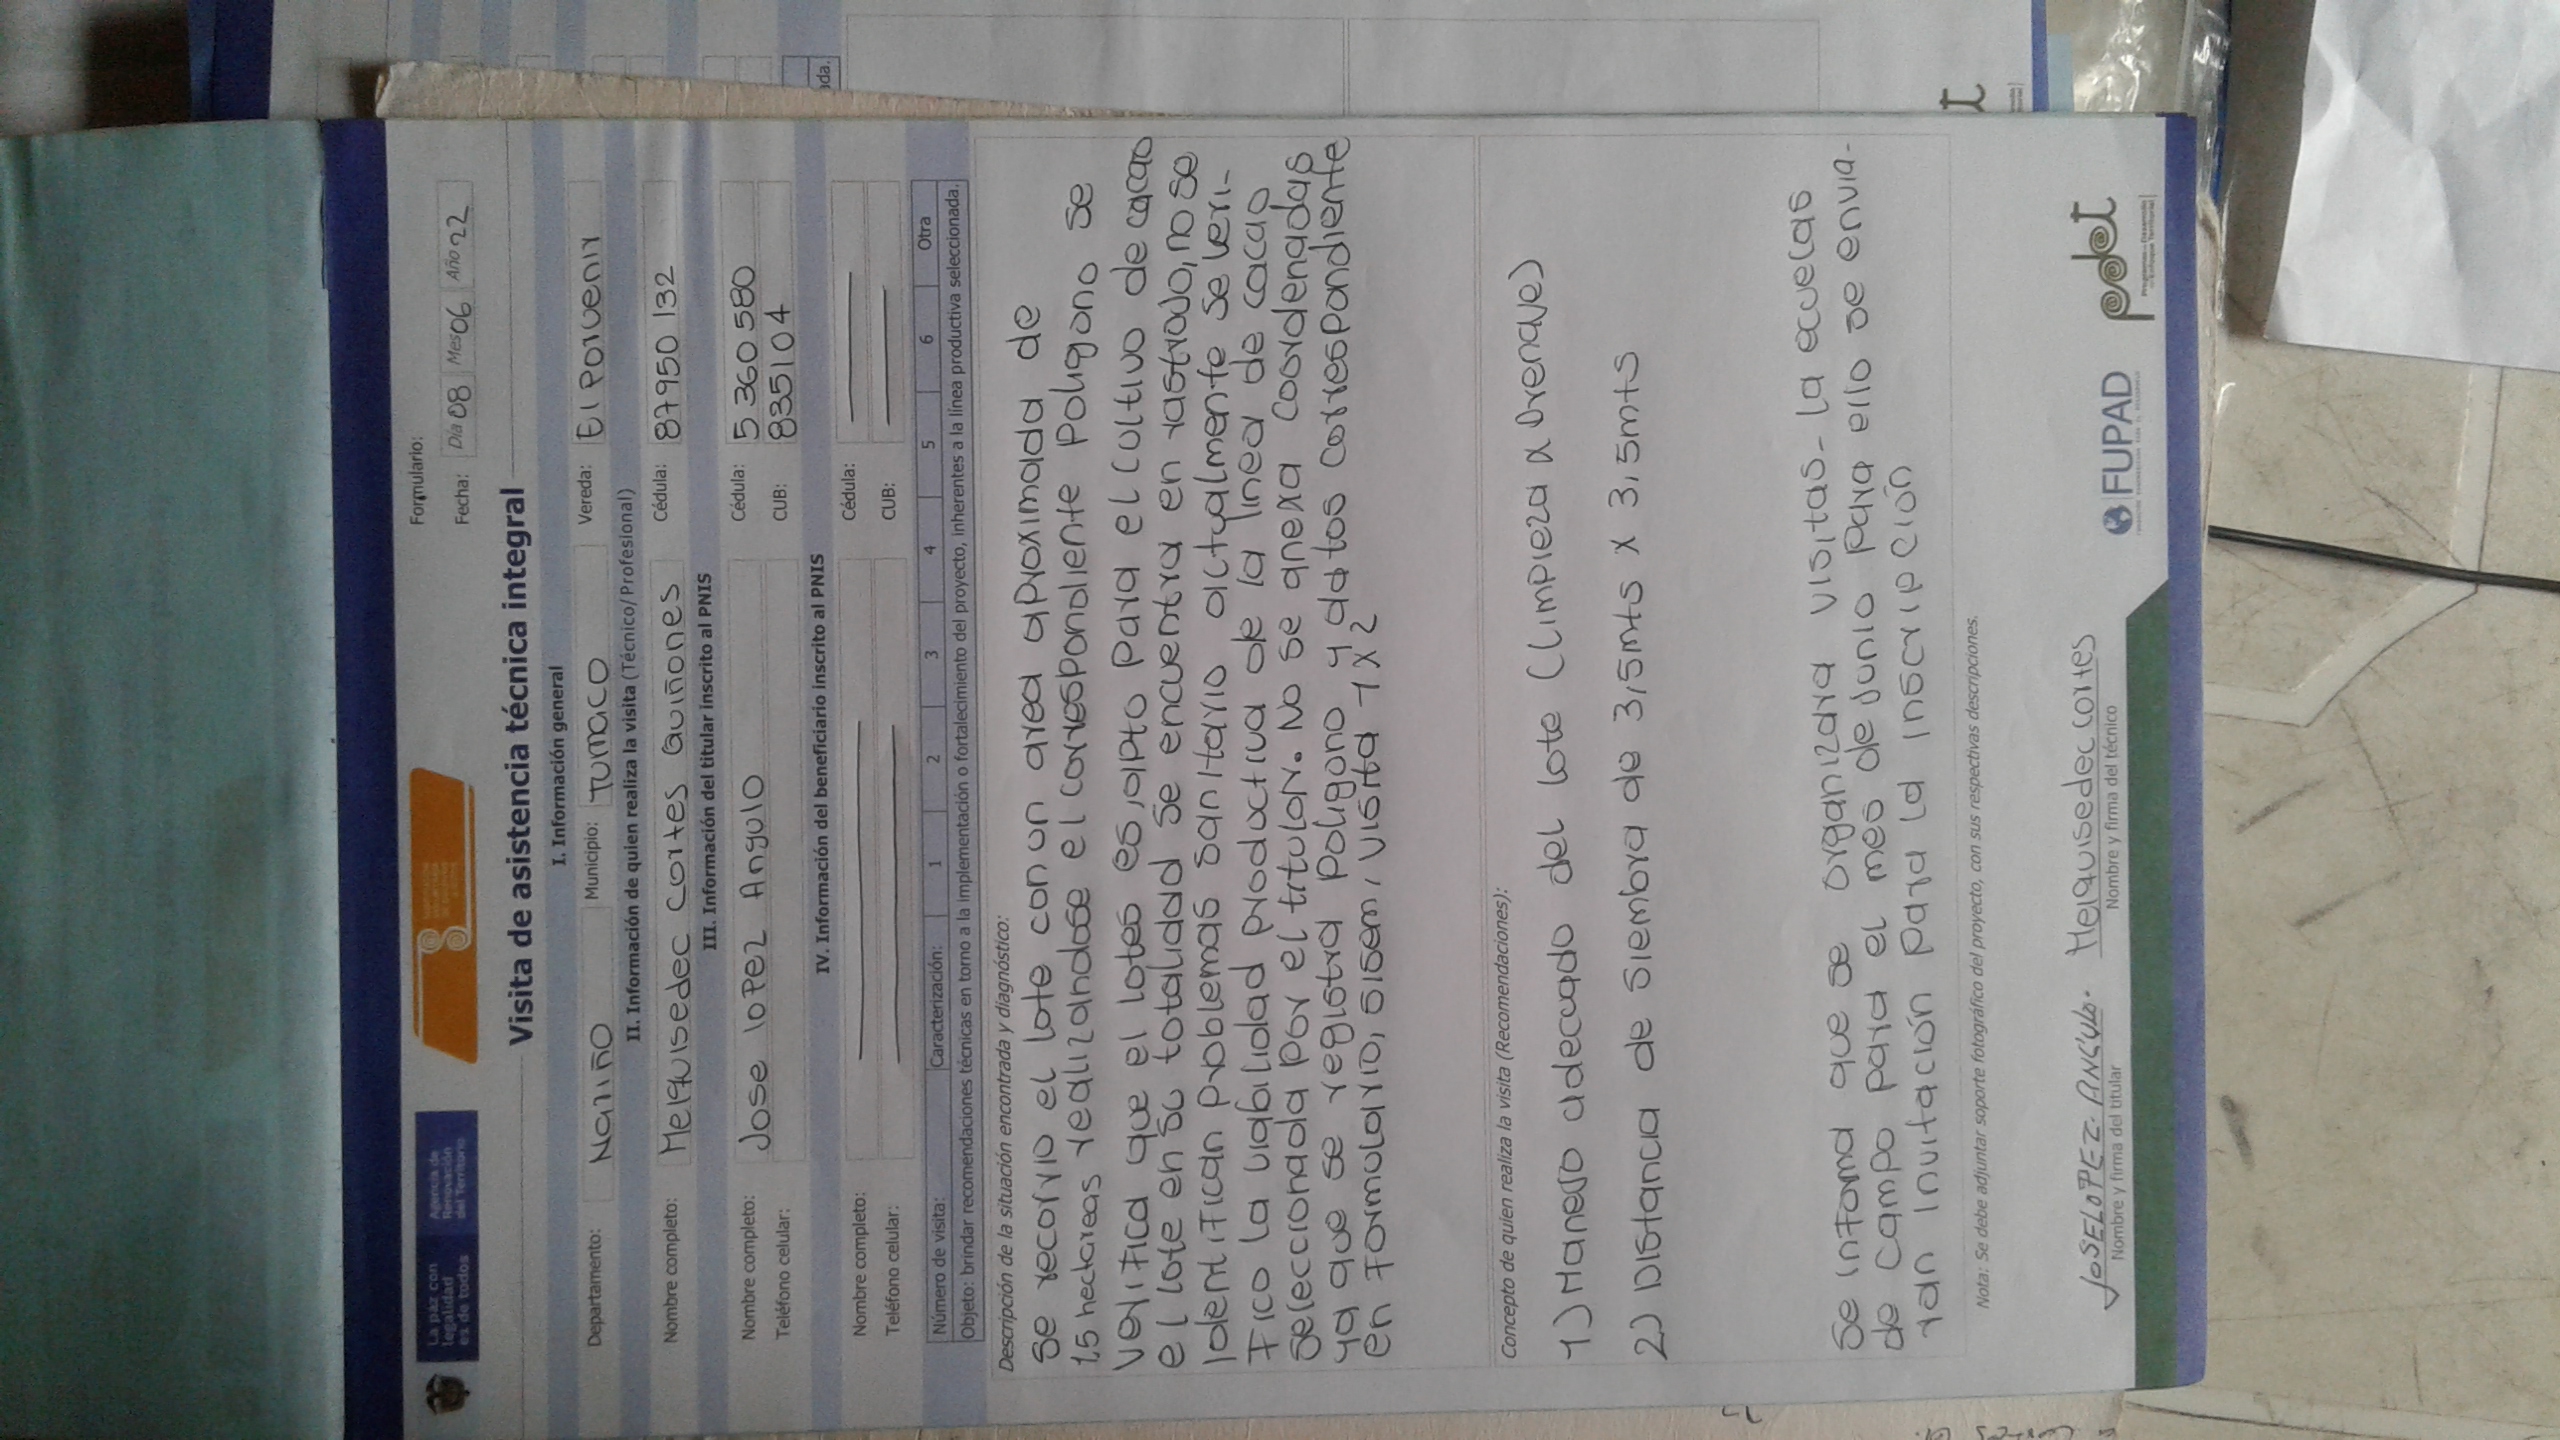 La paz con
legalidad
es de todos
Agencia de
Renovación
del Territorio
Formulario:
Fecha: Día 08 Mes 06 Año 22
Visita de asistencia técnica integral
I. Información general
Departamento: Nariño Municipio: Tumaco Vereda: El Porvenir
II. Información de quien realiza la visita (Técnico/Profesional)
Nombre completo: Melquisedec Cortes Quiñones Cédula: 87950 132
III. Información del titular inscrito al PNIS
Nombre completo: Jose lopez Angulo Cédula: 5 360 580
Teléfono celular: CUB: 835104
IV. Información del beneficiario inscrito al PNIS
Nombre completo: Cédula:
Teléfono celular: CUB:
Número de visita: Caracterización: 1 2 3 4 5 6 Otra
Objeto: brindar recomendaciones técnicas en torno a la implementación o fortalecimiento del proyecto, inherentes a la línea productiva seleccionada.
Descripción de la situación encontrada y diagnóstico:
Se recorrio el lote con un area aproximada de
1,5 hectareas realizandose el correspondiente Poligono se
verifica que el lotes es, apto para el cultivo de cacao
el lote en su totalidad se encuentra en rastrojo, no se
identifican problemas sanitario actualmente se veri-
fico la viabilidad productiva de la linea de cacao
seleccionada por el titular. No se anexa coordenadas
ya que se registra poligono y datos correspondiente
en Formulario, sisem, visita 1 x 2
Concepto de quien realiza la visita (Recomendaciones):
1) Manejo adecuado del lote (Limpieza y Drenaje)
2) Distancia de siembra de 3,5mts x 3,5mts
Se informa que se organizara visitas- la ecuelas
de campo para el mes de Junio para ello se envia-
ran invitación para la inscripción
Nota: Se debe adjuntar soporte fotográfico del proyecto, con sus respectivas descripciones.
JOSE LOPEZ. ANGULO. Melquisedec cortes
Nombre y firma del titular Nombre y firma del técnico
FUPAD
pdet
Programas de Desarrollo
con Enfoque Territorial